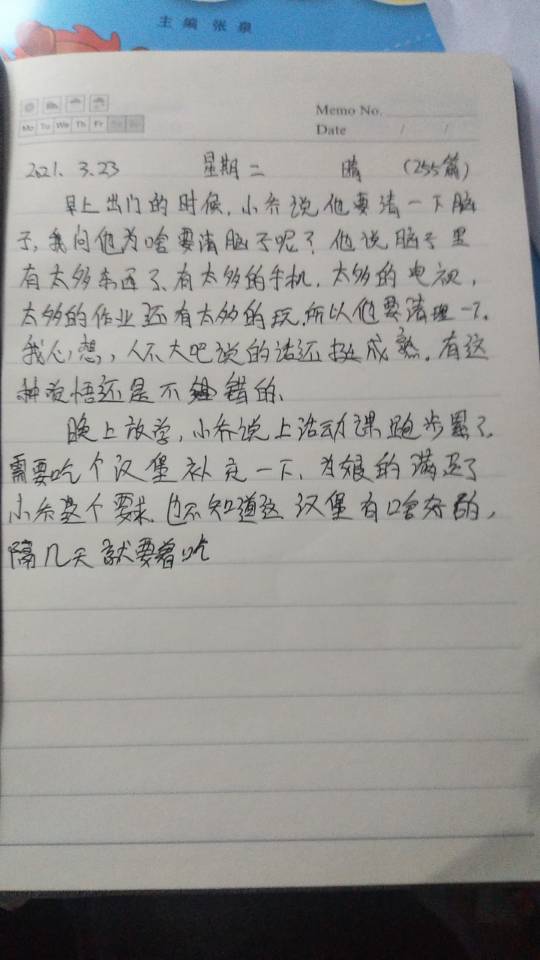 主编 张泉
Mo Tu We Th Fr Sa Su
Memo No.
Date / /
2021. 3.23 星期二 晴 (255篇)
早上出门的时候,小乔说他要清一下脑
子,我问他为啥要清脑子呢?他说脑子里
有太多东西了,有太多的手机,太多的电视,
太多的作业还有太多的玩,所以他要清理一下。
我心想,人不大吧说的话还挺成熟,有这
种觉悟还是不错的、
晚上放学,小乔说上活动课跑步累了,
需要吃个汉堡补充一下,为娘的满足了
小乔这个要求,也不知道这汉堡有啥好的,
隔几天就要着吃